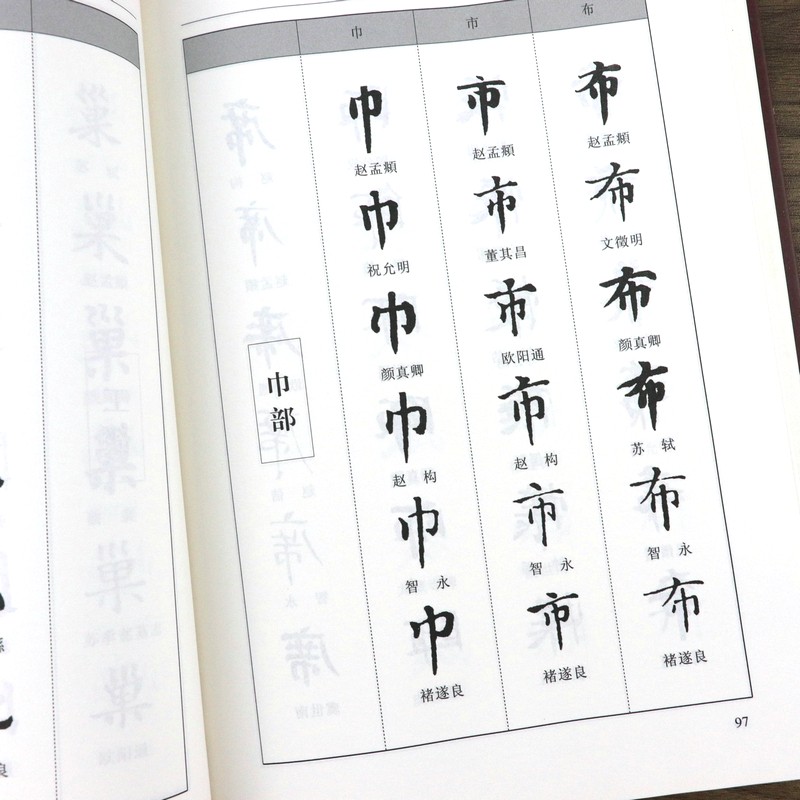 巾 市 布
巾 市 布
赵孟頫 赵孟頫 赵孟頫
巾 市 布
祝允明 董其昌 文徵明
巾 市 布
颜真卿 欧阳通 颜真卿
巾部
巾 市 布
赵构 赵构 苏轼
巾 市 布
智永 智永 智永
巾 市 布
褚遂良 褚遂良 褚遂良
97